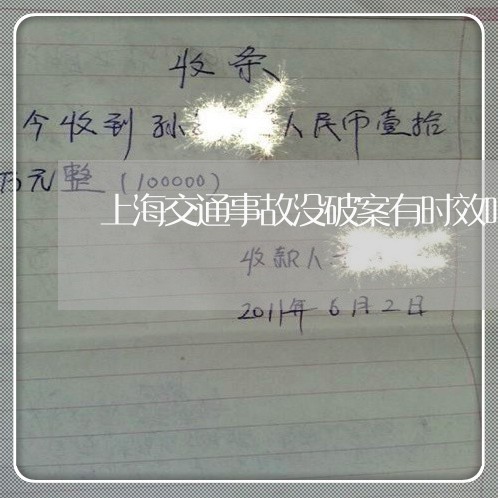 收条
今收到孙 人民币壹拾
万元整（100000）
上海交通事故没破案有时效
收款人
2011年6月2日